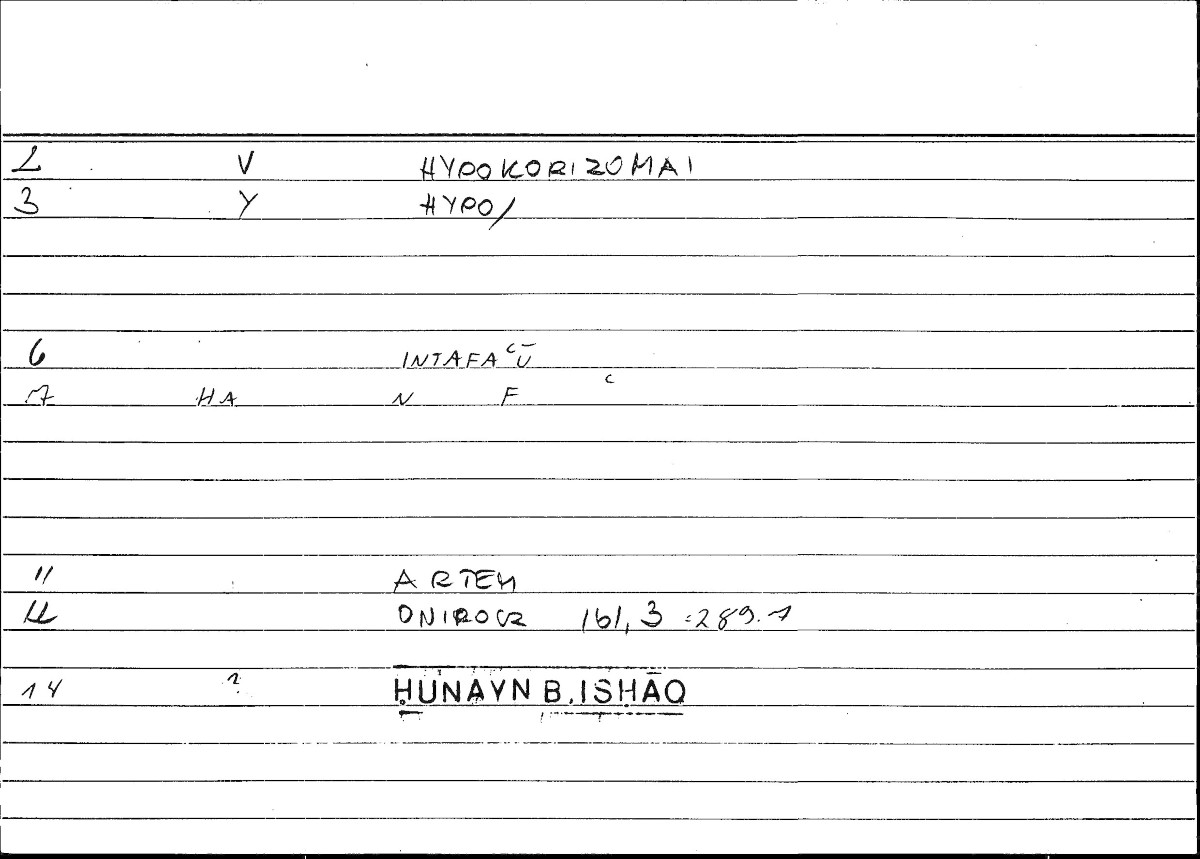 2 V HYPOKORIZOMAI
3 Y HYPO/
6 INTAFAʿŪ
7 HA N F ʿ
11 ARTEM
12 ONIROCR 161, 3 = 289.7
14 ? ḤUNAYN B. ISḤĀQ